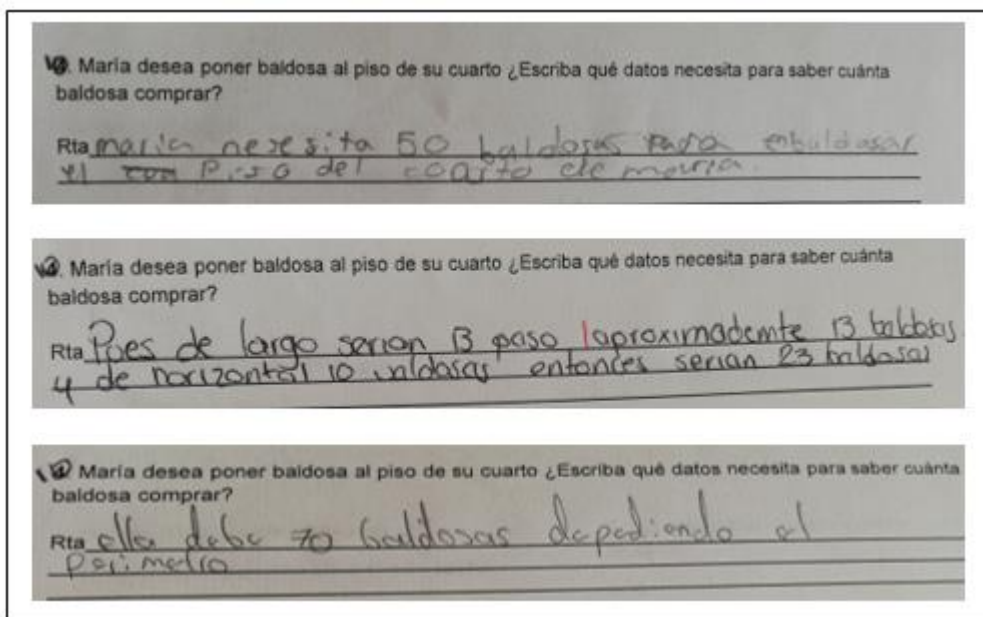 10. María desea poner baldosa al piso de su cuarto ¿Escriba qué datos necesita para saber cuánta
baldosa comprar?
Rta maria nesesita 50 baldosas para enbaldosar
el piso del coarto de maria.
María desea poner baldosa al piso de su cuarto ¿Escriba qué datos necesita para saber cuánta
baldosa comprar?
Rta Pues de largo serian 13 paso aproximademte 13 baldosas
y de horizontal 10 valdosas entonces serian 23 baldosas
María desea poner baldosa al piso de su cuarto ¿Escriba qué datos necesita para saber cuánta
baldosa comprar?
Rta ella debe 70 baldosas depediendo el
perimetro